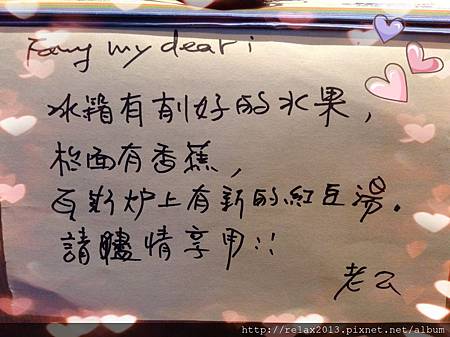 Fang my dear:
冰箱有削好的水果，
桌面有香蕉，
瓦斯炉上有新的紅豆湯。
請盡情享用!!
老公
http://relax2013.pixnet.net/album